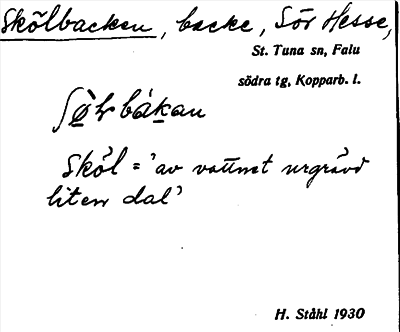 Skölbacken, backe, Sör Hesse,
St. Tuna sn, Falu
södra tg, Kopparb. l.
Sköl = 'av vattnet urgrävd
liten dal'
H. Ståhl 1930